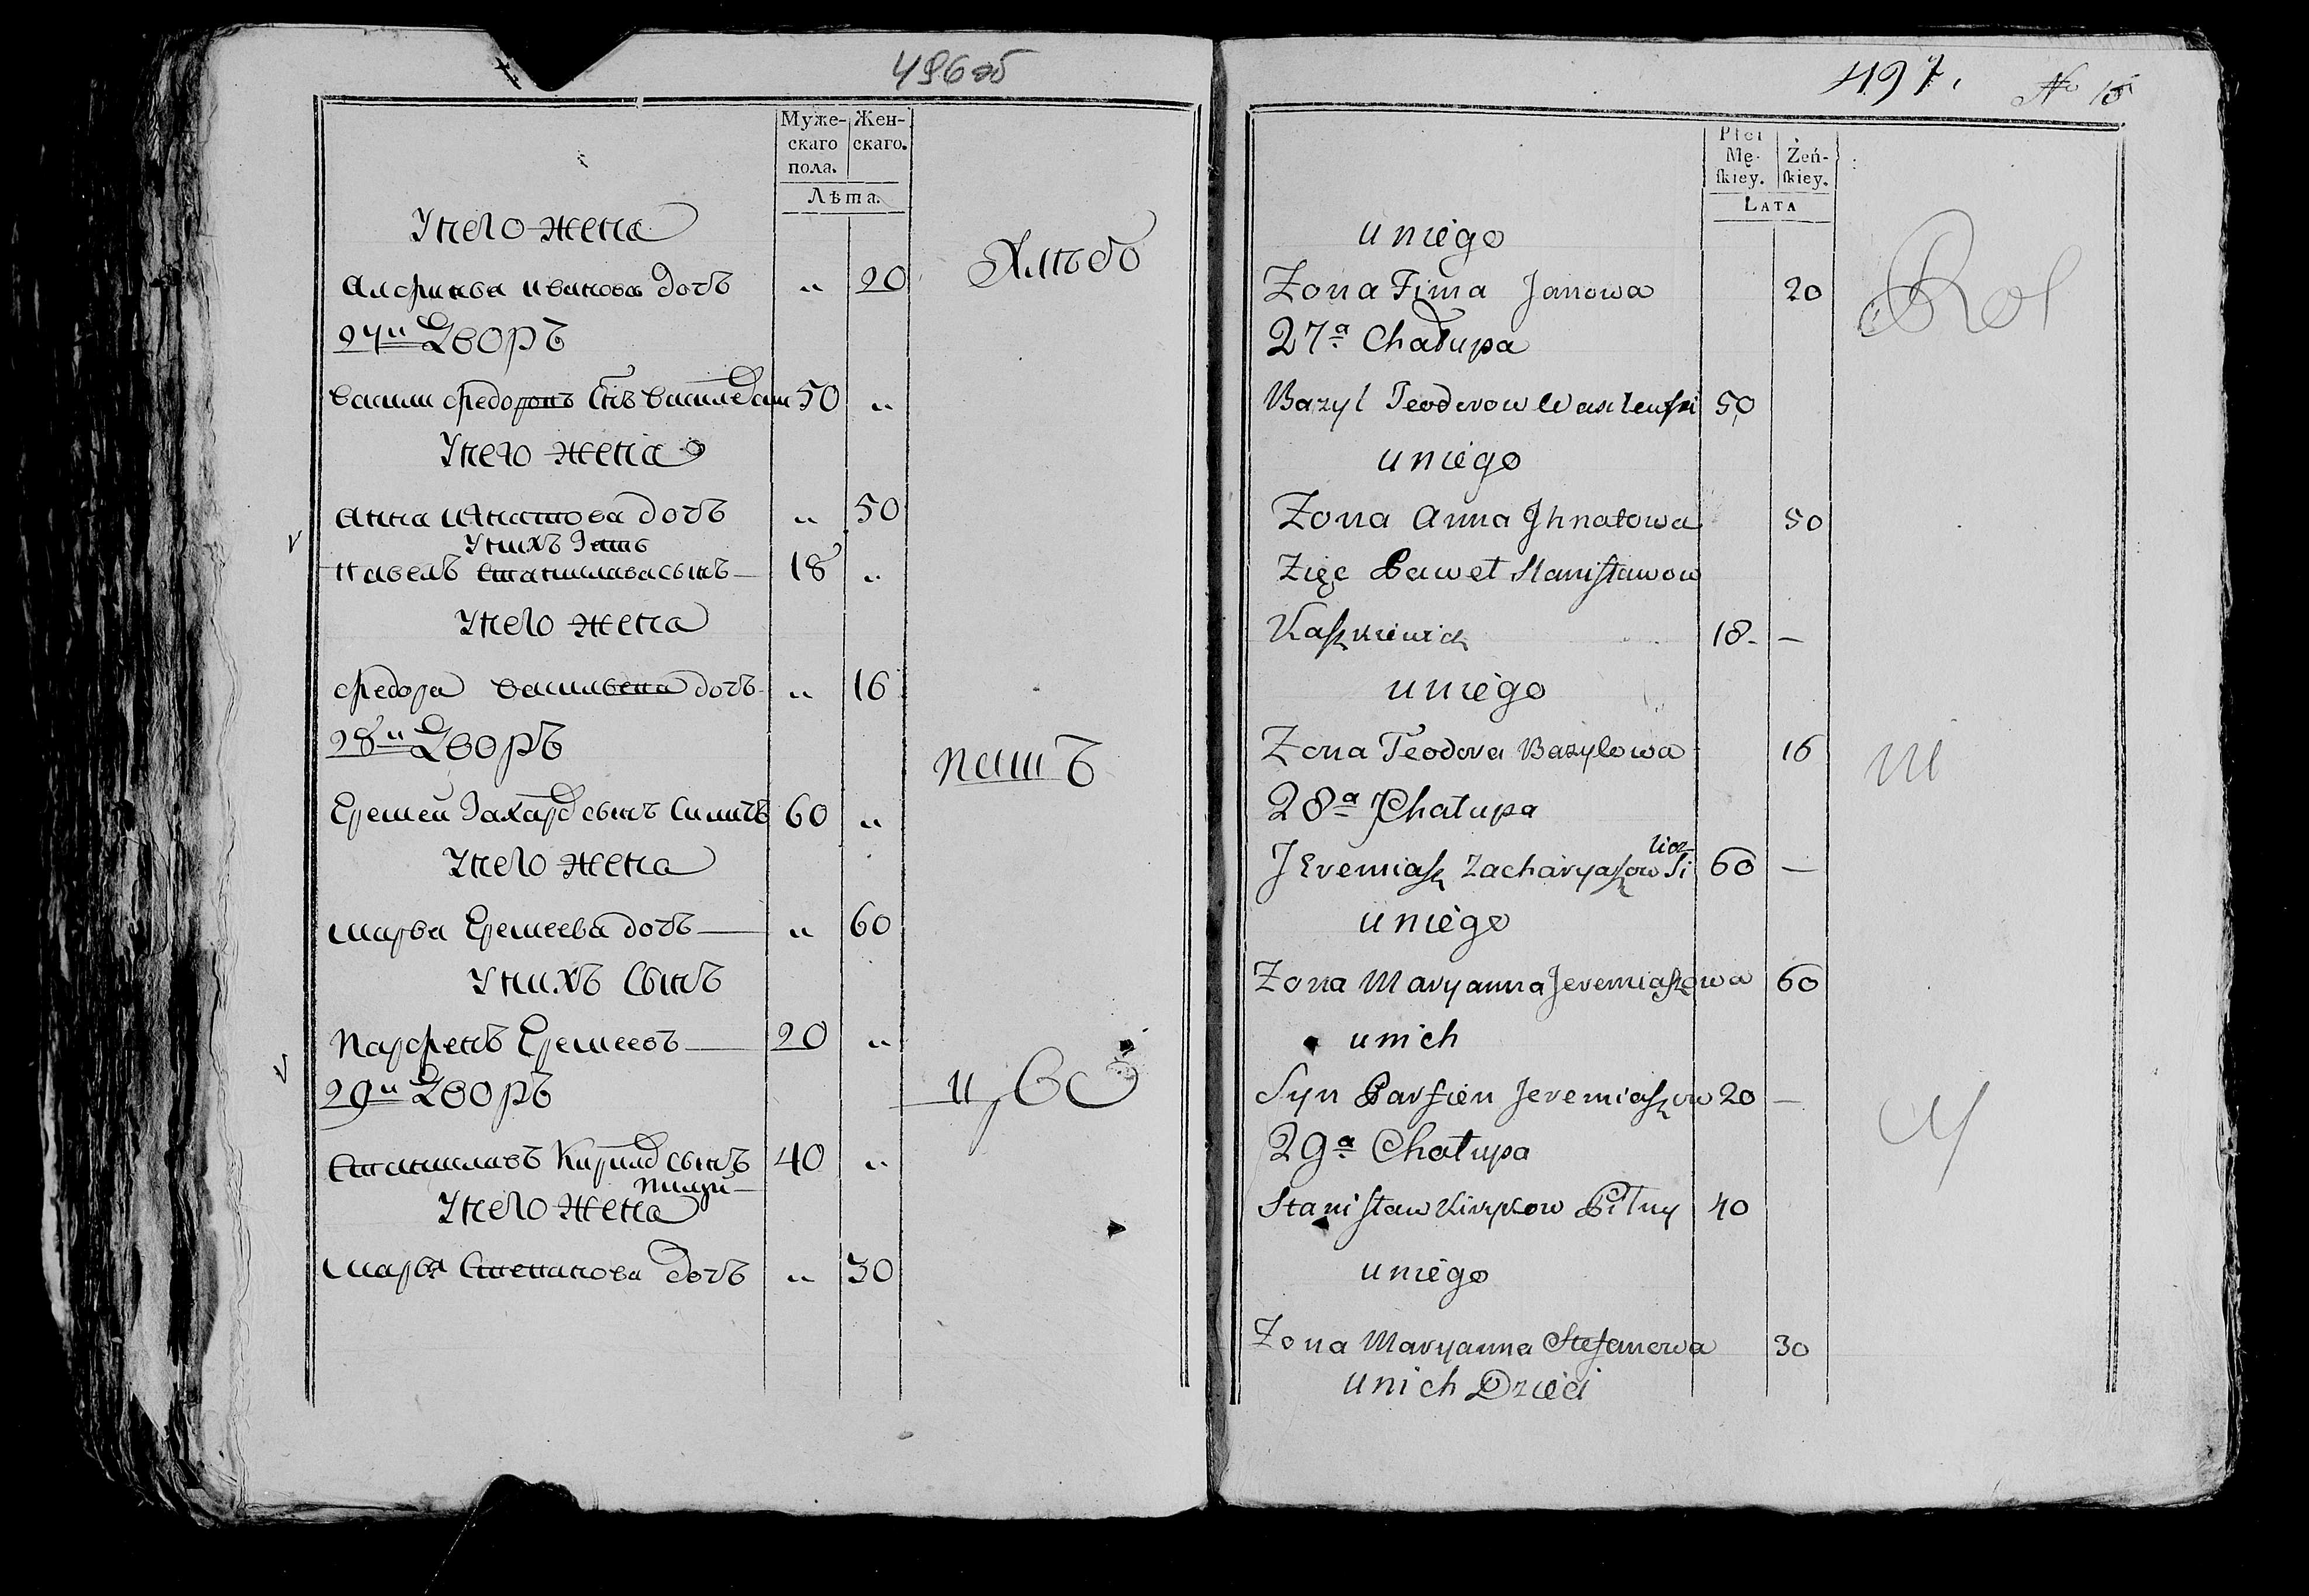 496об
Муже- Жен-
скаго скаго.
пола.
Лѣта.
Унего жена
Иванова дочь " 20
27й Дворъ
Василй Федоровъ Снъ 50 "
Унего жена
Анна Игнатова дочь " 50
Унихъ Зять
Павелъ Станиславасынъ 18 "
Унего жена
Федора Васильвена дочь " 16
28й Дворъ
Еремей Захар сынъ 60 "
Унего жена
Марва Еремеева дочь " 60
Унихъ Сынъ
Парфенъ Еремеевъ 20 "
29й Дворъ
Станиславъ Кирилд сынъ 40 "
Унего жена
Марья Степанова дочь " 30
497. No 15
Płci
Mę- Żeń-
ſkiey. ſkiey.
LATA
uniego
Zona Fima Janowa 20
27a Chałupa
Bazyl Teodorow Wasilewſki 50
uniego
Zona Anna Jhnatowa 50
Zięc Paweł Staniſławow
Kaſzkiewicz 18 —
uniego
Zona Teodora Bazylowa 16
28a Chałupa
Jeremiaſz Zacharyaſzow 60 —
uniego
Zona Maryanna Jeremiaſzowa 60
unich
Syn Parfien Jeremiaſzow 20 —
29a Chałupa
Staniſław Kirykow Pilny 40
uniego
Zona Maryanna Stefanowa 30
unich Dzieci